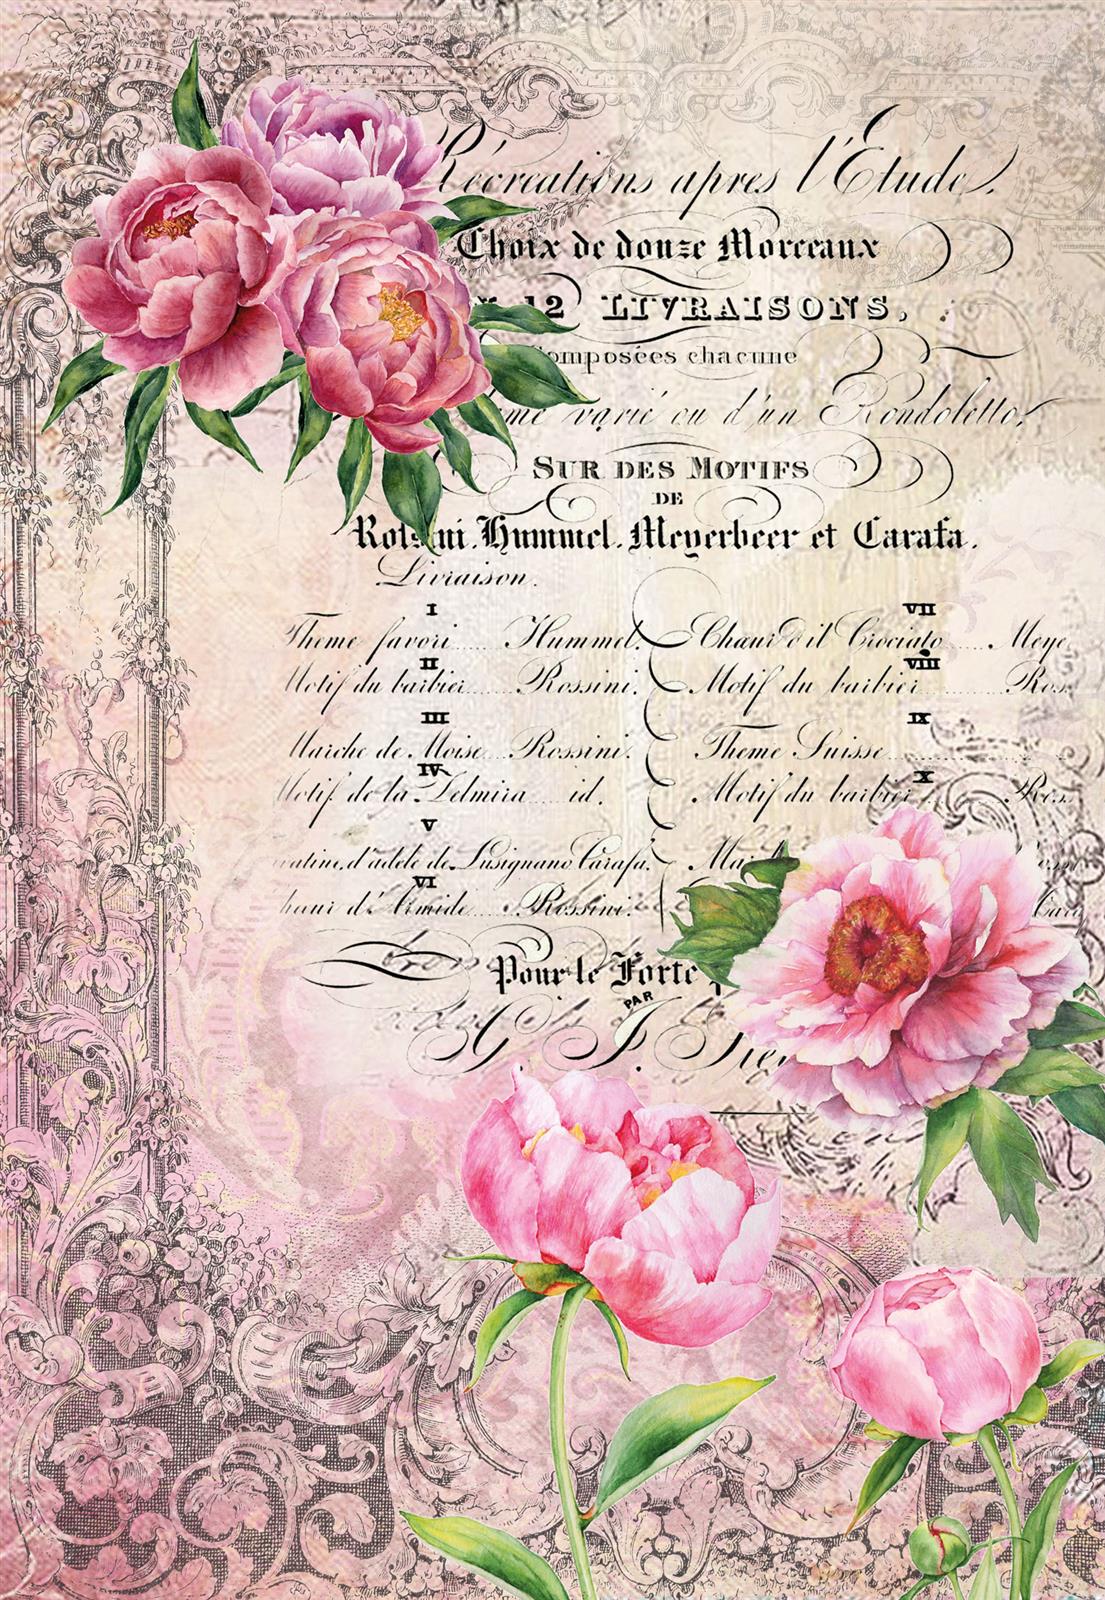 Récréations apres l'Etude.
Choix de douze Morceaux
12 LIVRAISONS,
Composées chacune
varié ou d'un Rondoletto,
SUR DES MOTIFS
DE
Rossini, Hummel, Meyerbeer et Carafa.
Livraison.
I
Theme favori Hummel.
II
Motif du barbier Rossini.
III
Marche de Moise Rossini.
IV
Motif de la Zelmira id.
V
d'adele de Lusignano Carafa.
VI
d'Armide Rossini.
VII
Chœur d'il Crociato Meye
VIII
Motif du barbier Ros.
IX
Theme Suisse
X
Motif du barbier Ros.
Pour le Forte
PAR
G. J.